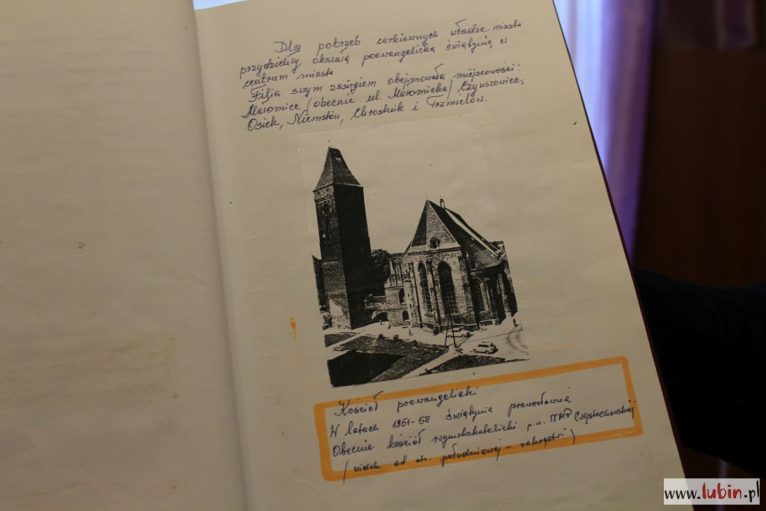 Dla potrzeb cerkiewnych władze miasta
przydzieliły okazałą poewangelicką świątynię w
centrum miasta
Filia swym zasięgiem obejmowała miejscowości:
Małomice /obecnie ul. Małomicka/ Czynszowice,
Osiek, Niemstów, Chrostnik i Trzmielów.
Kościół poewangelicki
W latach 1951-58 świątynia prawosławna
Obecnie kościół rzymskokatolicki p.w. MP Częstochowskiej
/widok od str. południowej - zakrystii/
www.lubin.pl